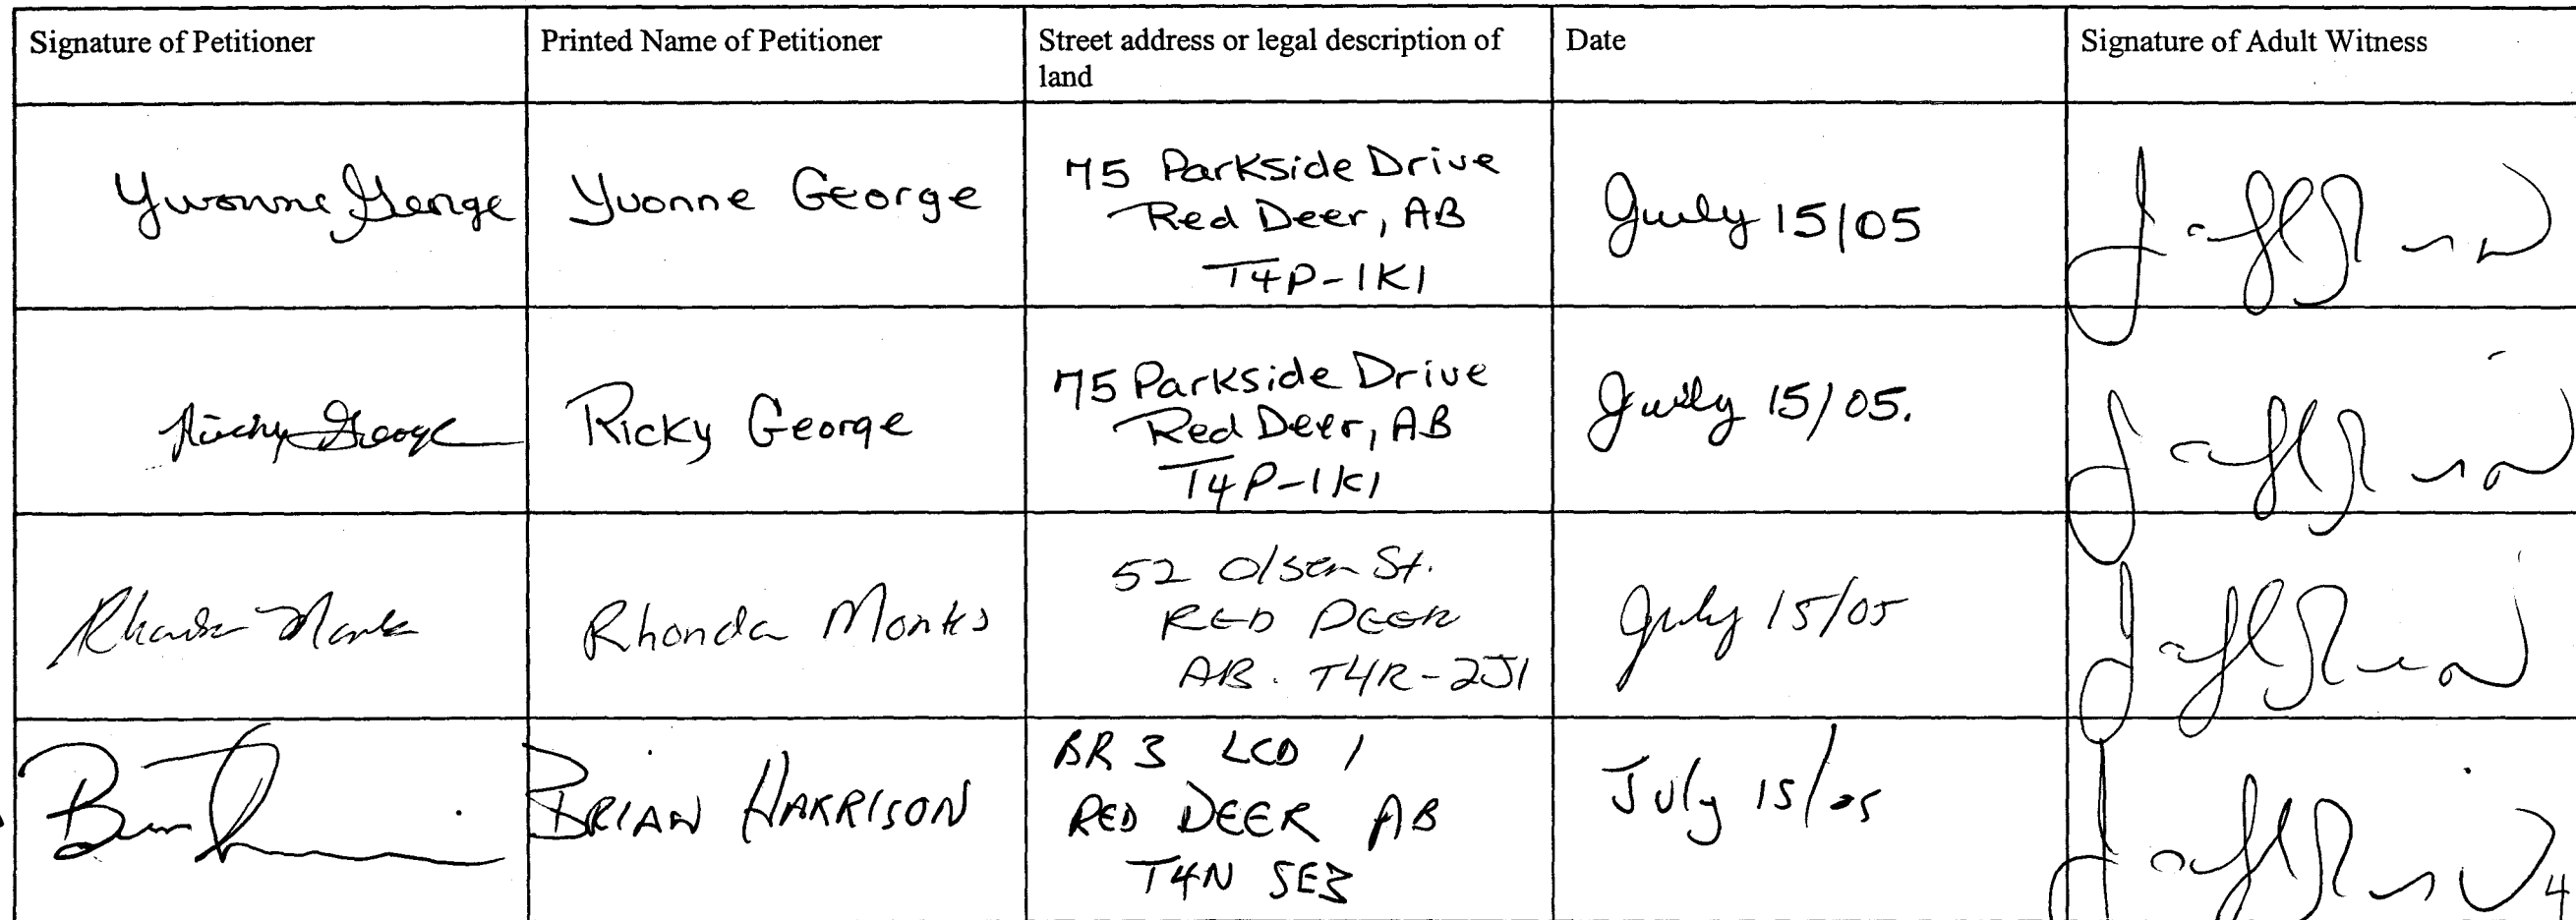 Signature of Petitioner
Printed Name of Petitioner
Street address or legal description of
land
Date
Signature of Adult Witness
Yvonne George
Yvonne George
75 Parkside Drive
Red Deer, AB
T4P-1K1
July 15/05
Ricky George
Ricky George
75 Parkside Drive
Red Deer, AB
T4P-1K1
July 15/05.
Rhonda Monks
Rhonda Monks
52 Olsen St.
RED DEER
AB. T4R-2J1
July 15/05
BRIAN HARRISON
BR 3 LCD 1
RED DEER AB
T4N 5E3
July 15/05
4